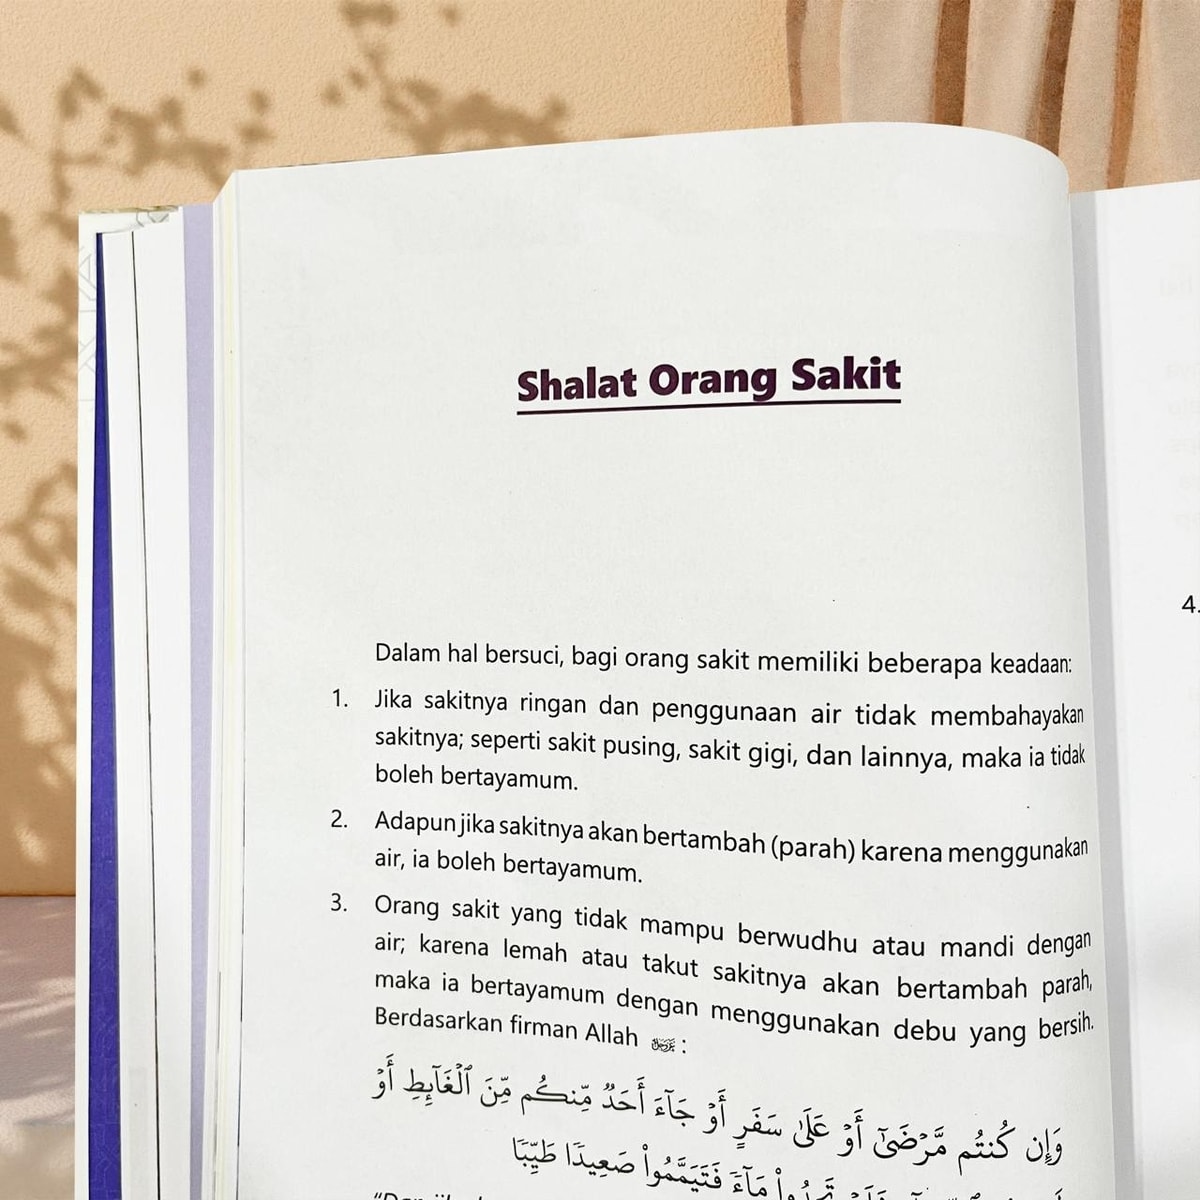 Shalat Orang Sakit
Dalam hal bersuci, bagi orang sakit memiliki beberapa keadaan:
1. Jika sakitnya ringan dan penggunaan air tidak membahayakan
sakitnya; seperti sakit pusing, sakit gigi, dan lainnya, maka ia tidak
boleh bertayamum.
2. Adapun jika sakitnya akan bertambah (parah) karena menggunakan
air, ia boleh bertayamum.
3. Orang sakit yang tidak mampu berwudhu atau mandi dengan
air; karena lemah atau takut sakitnya akan bertambah parah,
maka ia bertayamum dengan menggunakan debu yang bersih.
Berdasarkan firman Allah :
وَإِن كُنتُم مَّرْضَىٰٓ أَوْ عَلَىٰ سَفَرٍ أَوْ جَآءَ أَحَدٌ مِّنكُم مِّنَ ٱلْغَآئِطِ أَوْ
مَآءً فَتَيَمَّمُوا۟ صَعِيدًا طَيِّبًا
4.